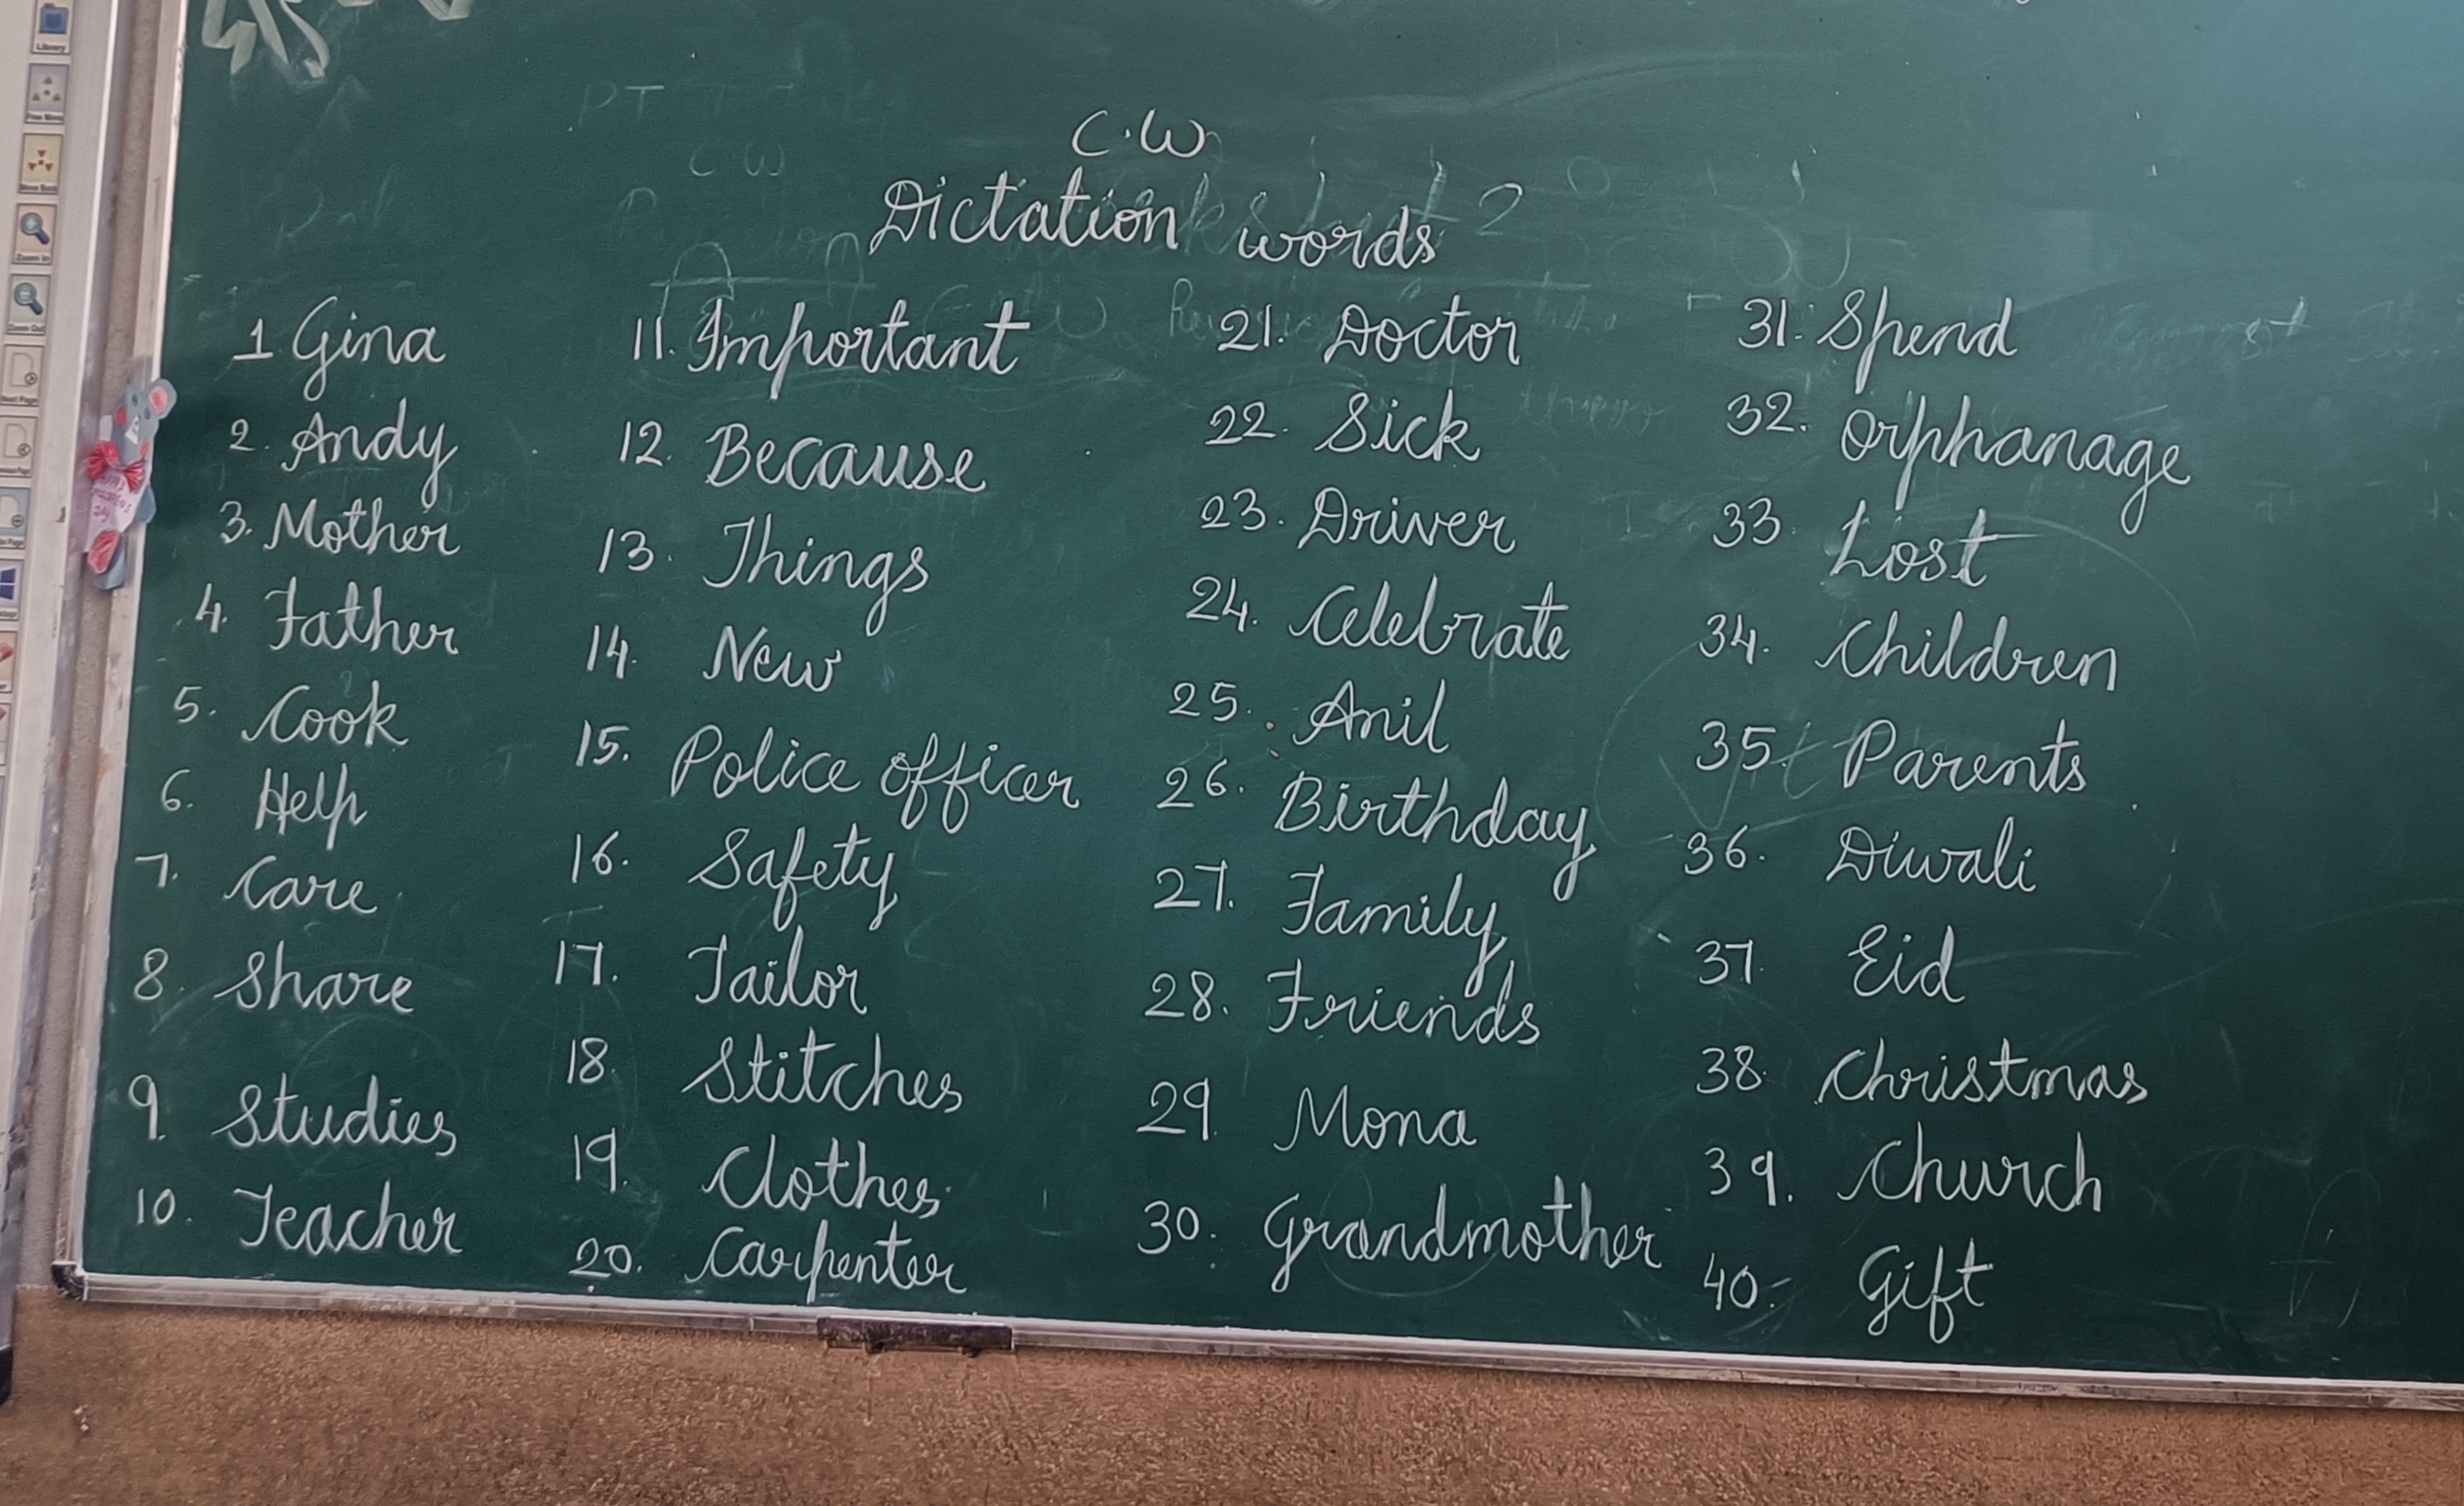 C.W
Dictation words
1 Gina
2. Andy
3. Mother
4. Father
5. Cook
6. Help
7. Care
8. Share
9. Studies
10. Teacher
11. Important
12. Because
13. Things
14. New
15. Police officer
16. Safety
17. Tailor
18. Stitches
19. Clothes
20. Carpenter
21. Doctor
22. Sick
23. Driver
24. Celebrate
25. Anil
26. Birthday
27. Family
28. Friends
29. Mona
30. Grandmother
31. Spend
32. Orphanage
33. Lost
34. Children
35. Parents
36. Diwali
37. Eid
38. Christmas
39. Church
40. Gift
Library
Zoom In
Zoom Out